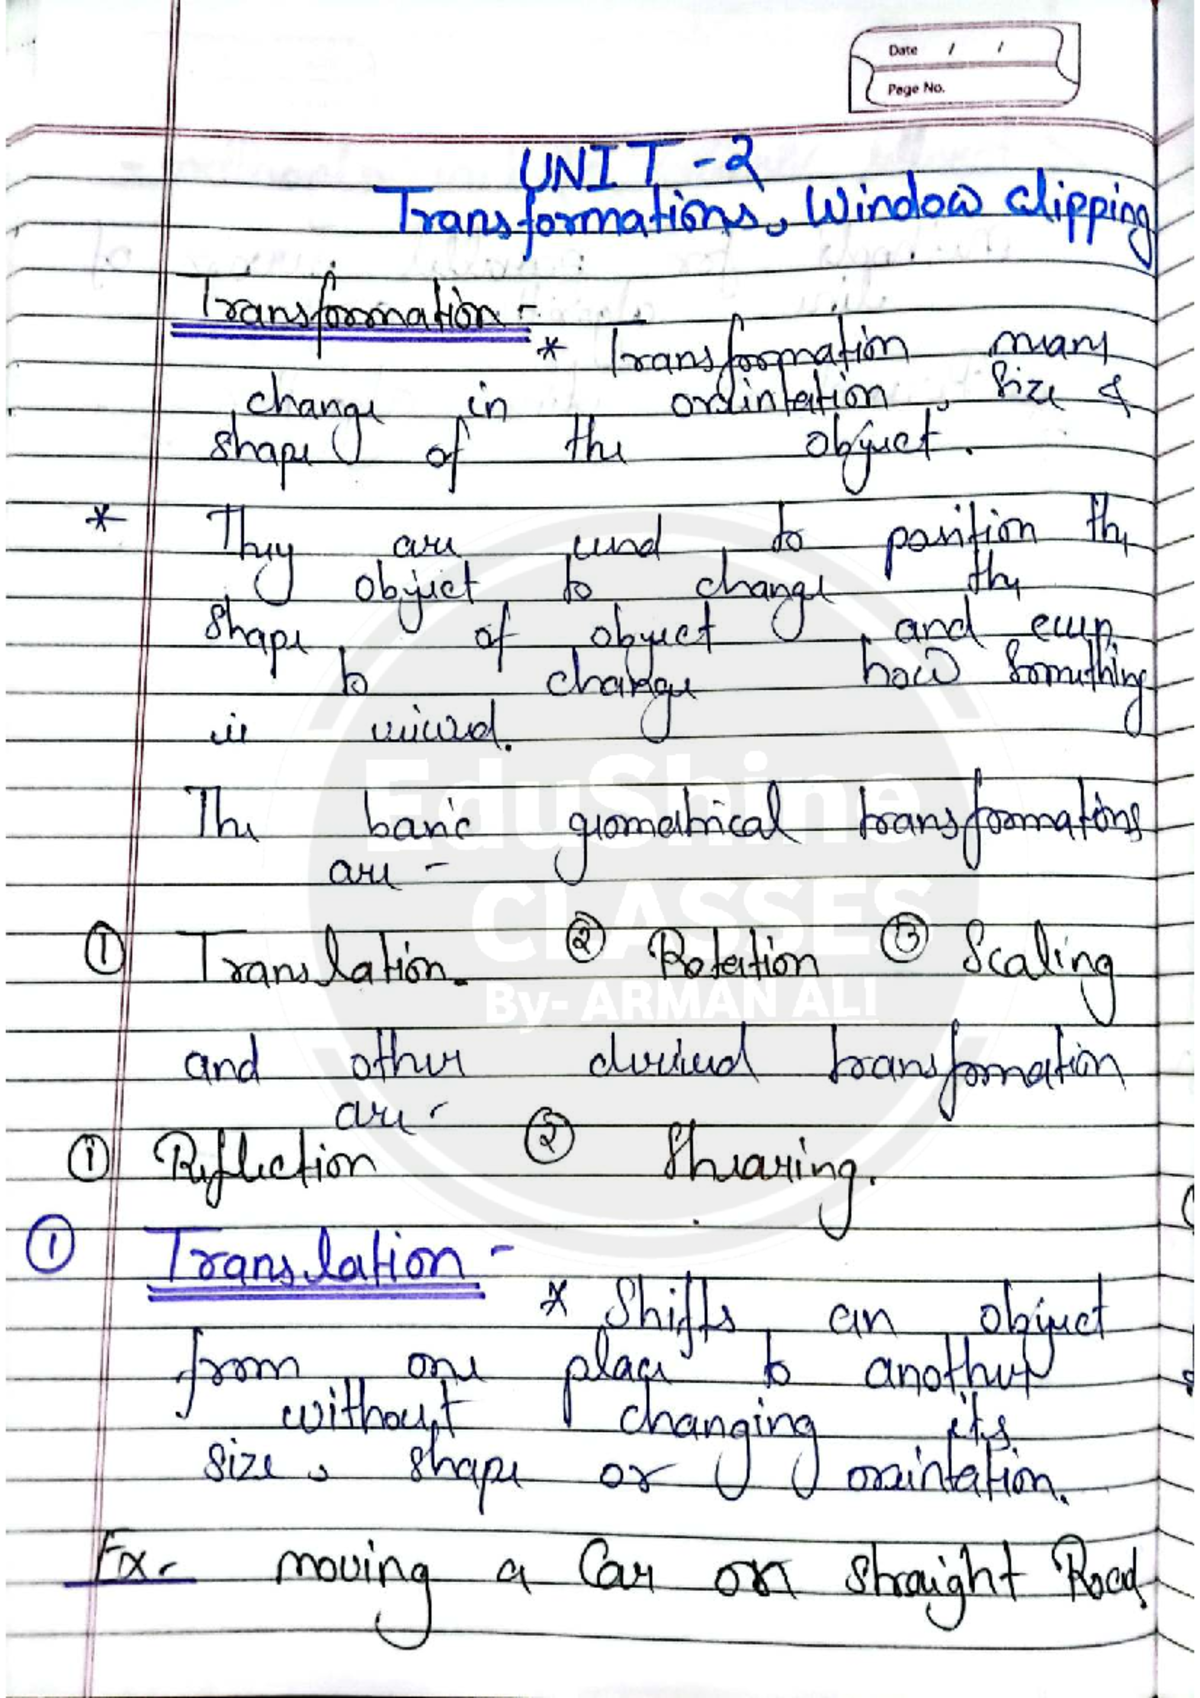 Date / /
Page No.
UNIT - 2
Transformations, Window Clipping
Transformation -
* Transformation means
change in orientation, size &
shape of the object.
* They are used to position the
object to change the
shape of object and even
to change how something
is viewed.
The basic geometrical transformations
are -
① Translation. ② Rotation ③ Scaling
and other derived transformation
are -
① Reflection ② Shearing.
① Translation -
* Shifts an object
from one place to another
without changing its
size, shape or orientation.
Ex. moving a Car on straight Road.
EduShine
CLASSES
By- ARMAN ALI